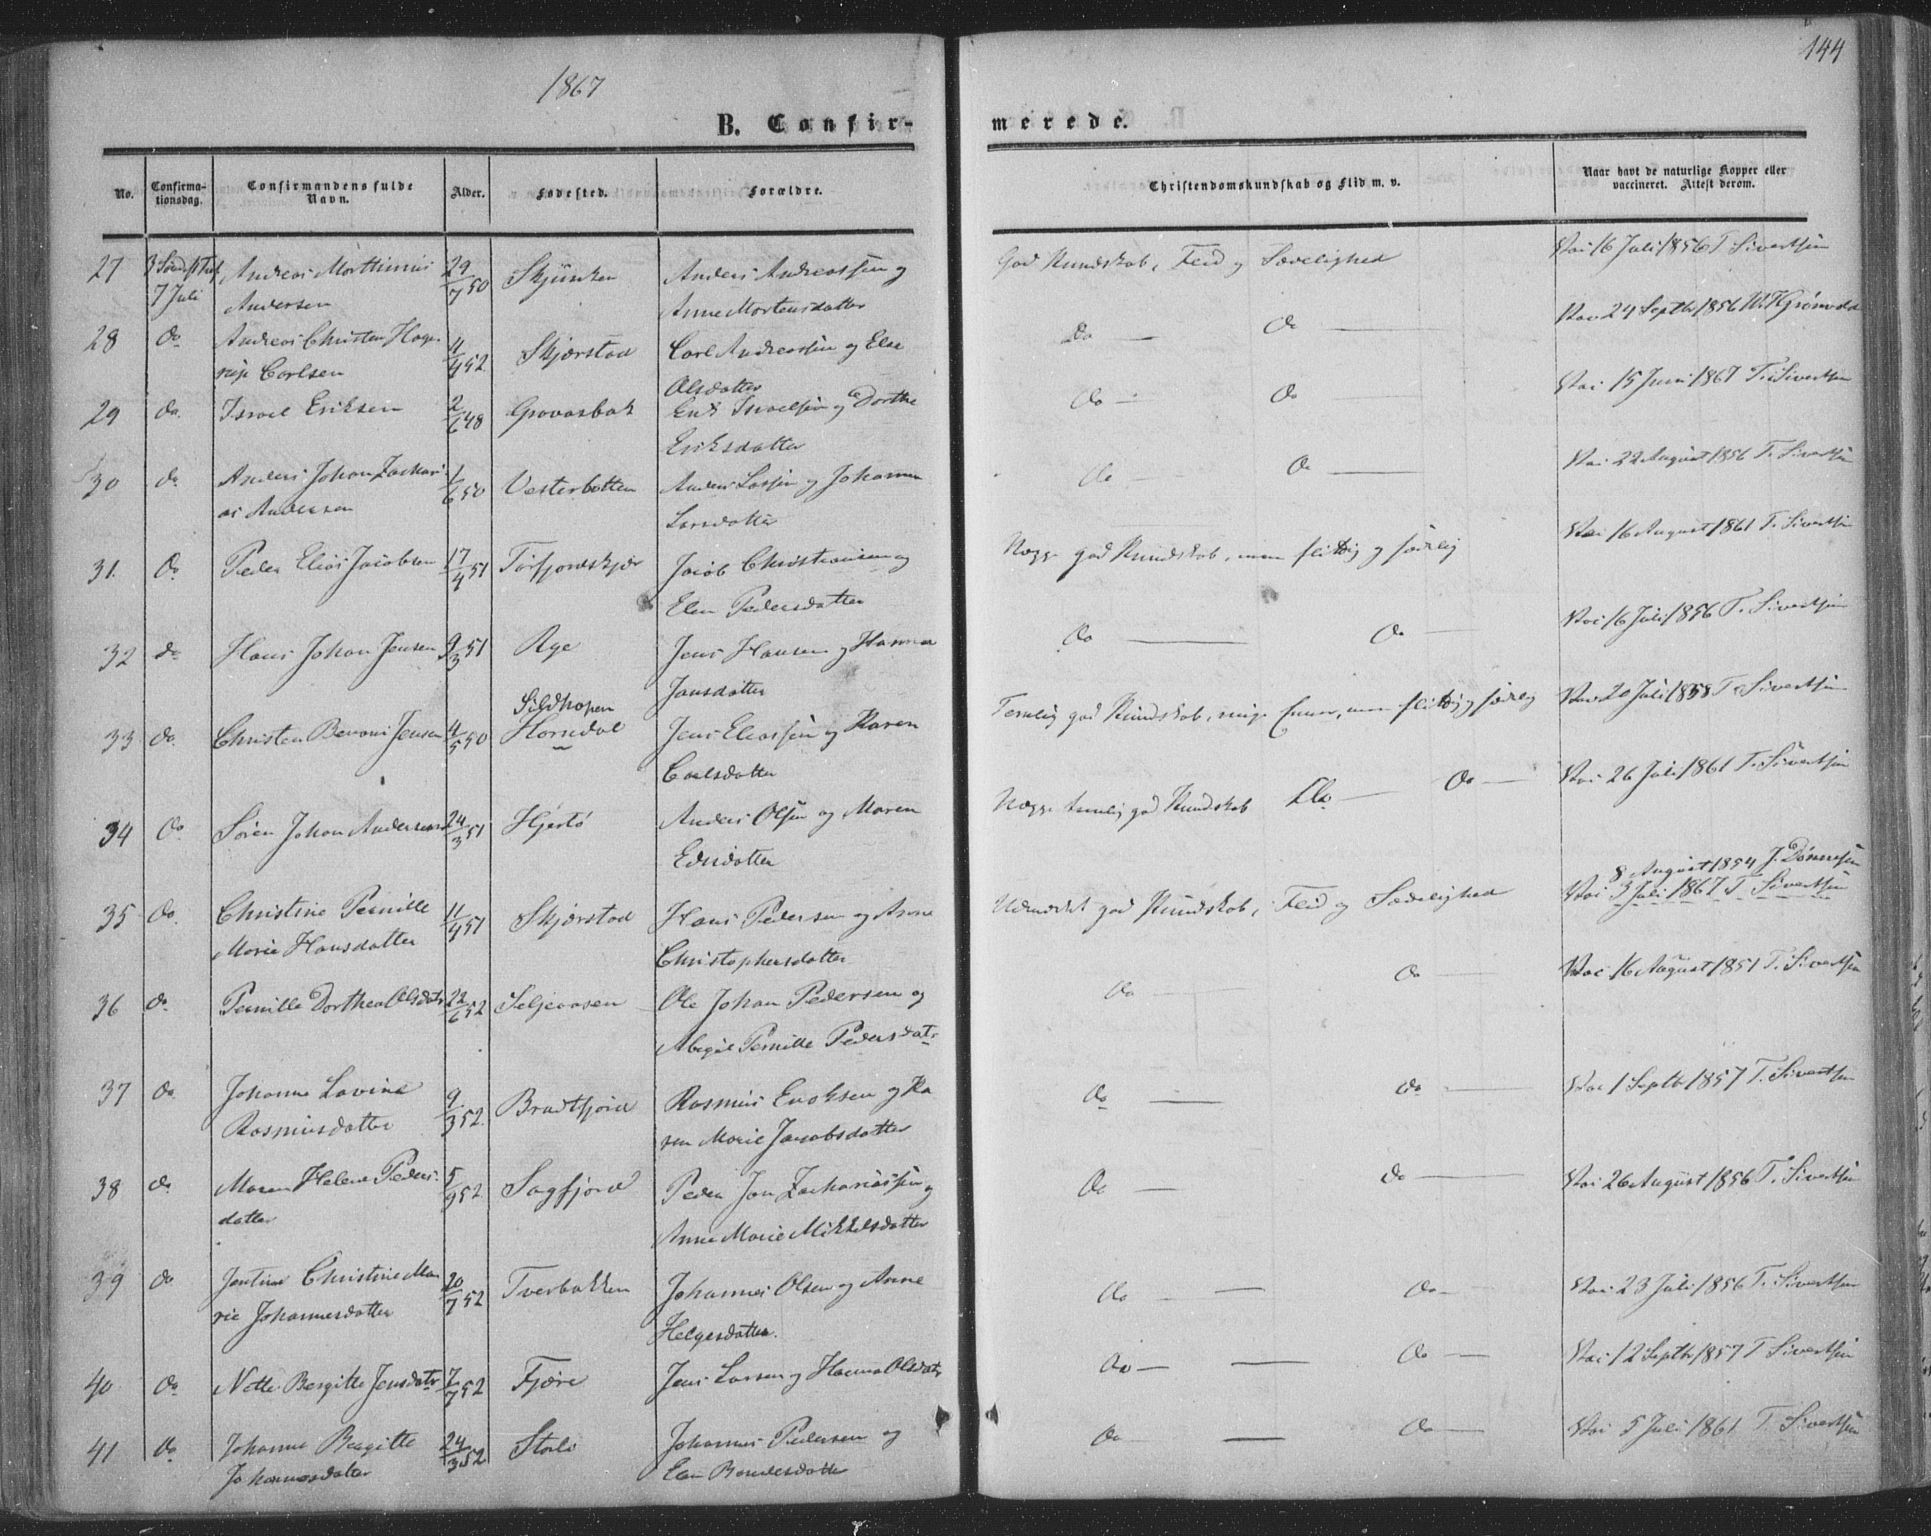 1867
144
B. Confirmerede.
No. Confirmationsdag. Confirmandens fulde Navn. Alder. Fødested. Forældre. Christendomskundskab og Flid m. v. Naar havt de naturlige Kopper eller vaccineret. Attest derom.
27 7 Juli Andreas Andersen 29/7 50 Anders Andreassen og Anne Mortensdatter God Kundskab, Flid og Sædelighed Vac 16 Juli 1856 T. Sivertsen
28 do Andreas Christen Carlsen 4/4 52 Skjerstad Carl Andreassen og Else Olsdatter Do — do — Vac 24 Septbr 1856
29 do Israel Eriksen 2/6 48 Erik Israelsen og Dorthe Eriksdatter do — do Vac 15 Juni 1867 T. Sivertsen
30 do Anders Johan Zacharias Andersen 1/6 50 Vesterbotten Anders Larsen og Johanna Larsdatter do — do — Vac 22 August 1856 T. Sivertsen
31. do Peder Elias Jacobsen 17/4 51 Jacob Christiansen og Elen Pedersdatter god Kundskab, men flittig og sædelig Vac 16 August 1861 T. Sivertsen
32 do Hans Johan Jensen 9/3 51 Jens Hansen og Hanna Jansdatter do — do — Vac 16 Juli 1856 T. Sivertsen
33 do Christen Benoni Jensen 4/5 50 Sildhopen Jens Eliassen og Karen Carlsdatter Temlig god Kundskab, ringe Evner, men flittig og sædelig Vac 20 Juli 1858 T. Sivertsen
34 do Søren Johan Andersen 24/3 51 Hjertø Anders Olsen og Maren temlig god Kundskab do — do — Vac 26 Juli 1861 T. Sivertsen
35 do Christine Pernille Marie Hansdatter 11/4 51 Skjerstad Hans Pedersen og Anne Christophersdatter Udmærket god Kundskab, Flid og Sædelighed 8 August 1854 J. Dønnesen Vac 3 Juli 1867 T. Sivertsen
36 do Pernille Dorthea Olsdatr 22/6 52 Seljeaasen Ole Johan Pedersen og Abigael Pernille Pedersdatr do — do — Vac 16 August 1851 T. Sivertsen
37 do Johanna Lovine Rasmusdatter 9/3 52. Rasmus Enoksen og Karen Marie Jacobsdatter do — do — Vac 1 Septbr 1857 T. Sivertsen
38 do Maren Helene Pedersdatter 5/9 52 Sagfjord Peder Jon Zachariassen og Anne Marie Mikkelsdatter do — do — Vac 26 August 1856 T. Sivertsen
39 do Jentine Christine Marie Johannesdatter 20/7 52 Tverbakken Johannes Olsen og Anne Helgesdatter. do — — do — Vac 23 Juli 1856 T. Sivertsen
40 do Bergitte Jensdatr 7/7 52 Fjære Jens Larsen og Hanna Olsdatr do — — do — Vac 12 Septbr 1857 T. Sivertsen
41 do Johanna Bergitte Johannesdatter 24/3 52 Storli Johannes Pedersen og Elen do — — do — Vac 5 Juli 1861 T. Sivertsen